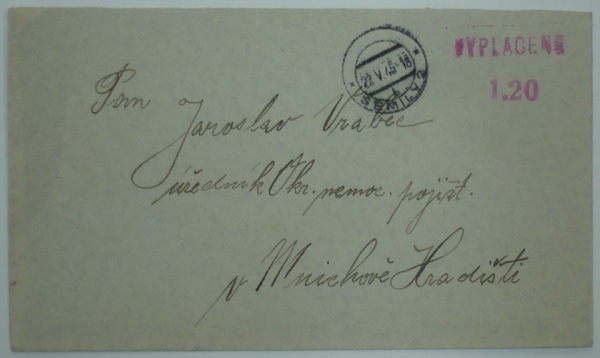 VYPLACENO
1.20
22.V.45-18
SEMILY 2
Pan
Jaroslav Vrabec
úředník Okr. nemoc. pojišť.
v Mnichově Hradišti